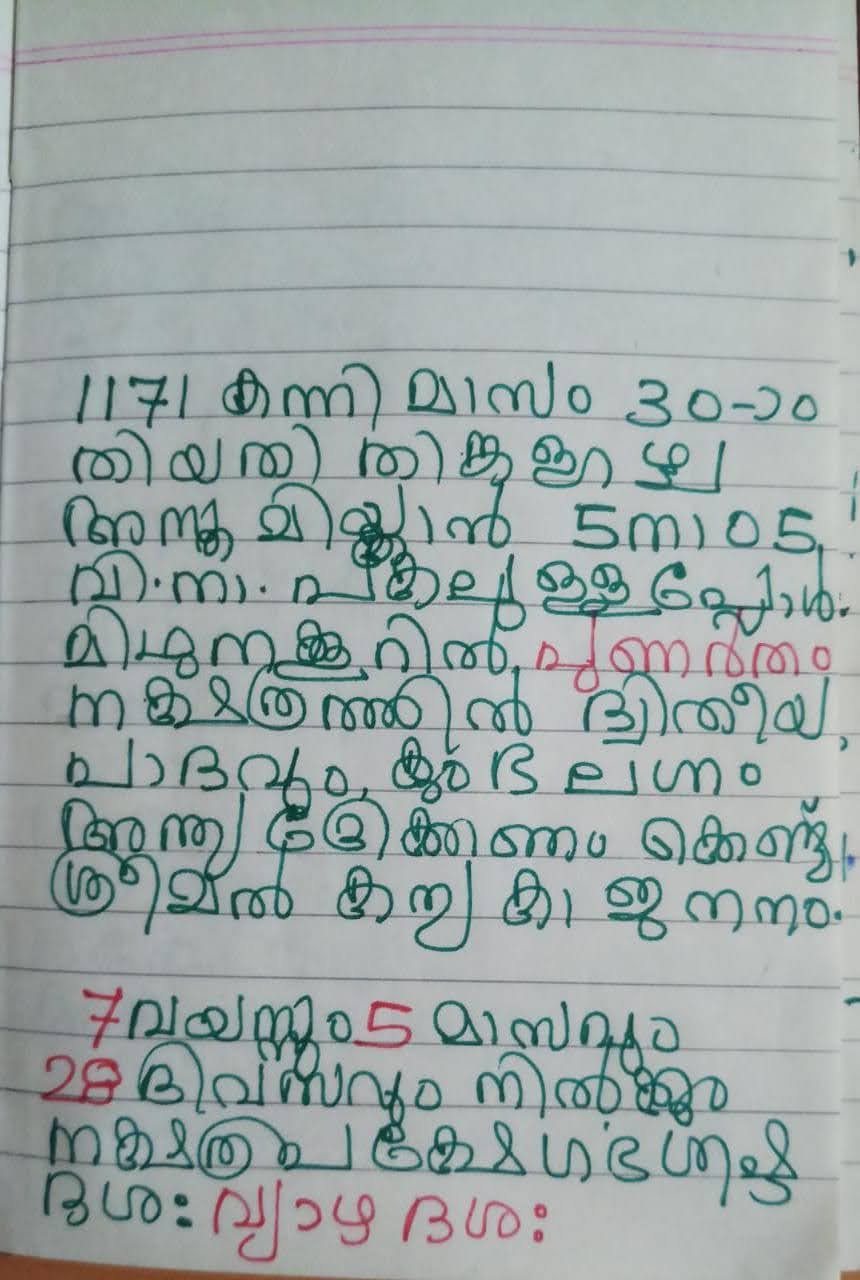 1171 കന്നി മാസം 30-ാം
തിയതി തിങ്കളാഴ്ച
5നാ 05
വി.നാ. പകലുള്ളപ്പോൾ.
മിഥുനക്കൂറിൽ, പുണർതം
നക്ഷത്രത്തിൽ ദ്വിതീയ,
പാദവും, കുംഭ ലഗ്നം
കൊണ്ട്
ശ്രീമൽ കന്യകാ ജനനം.
7 വയസ്സും 5 മാസവും
28 ദിവസവും നിൽക്കും
നക്ഷത്ര
ദശ: വ്യാഴ ദശ: